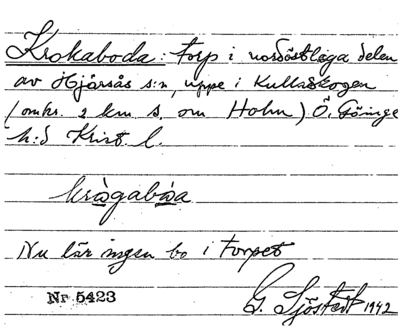 Krokaboda: torp i nordöstliga delen
av Hjärsås s:n, uppe i Kullaskogen
(omkr. 2 km s. om Holm) Ö. Göinge
h:d Krist. l.
kràgabǻa
Nu lär ingen bo i torpet
Nr 5423
G. Sjöstedt 1942